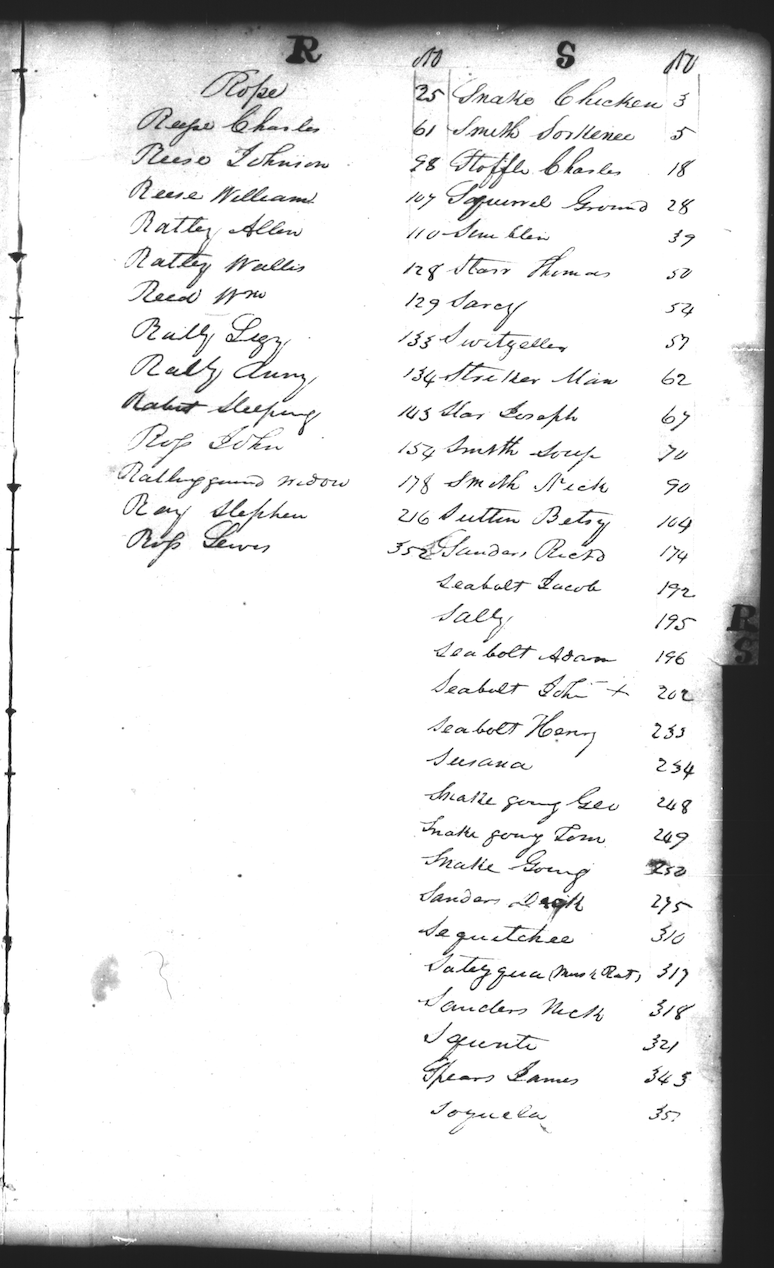 R No
Rope 25
Reese Charles 61
Reese Johnson 98
Reese William 107
Ratley Allen 110
Ratley Wallis 128
Reed Wm 129
Rally Lizy 133
Rally Anny 134
Rabut Sleeping 143
Ross John 154
Rattlinggourd widow 178
Ray Stephen 216
Ross Lewis 352
S No
Snake Chicken 3
Smith 5
Stoffle Charles 18
Squirrel Ground 28
39
Starr Thomas 50
Sarcy 54
Switzeller 57
Striker Man 62
Star Joseph 67
Smith Soup 70
Smith Nick 90
Sutton Betsy 104
Sanders Richd 174
Seabolt Jacob 192
Sally 195
Seabolt Adam 196
Seabolt John + 202
Seabolt Henry 233
Susana 234
Snake going Geo 248
Snake going Tom 249
Snake Going 250
Sanders 275
Sequatchee 310
Sateyqua (Musk Rat) 317
Sanders Nick 318
Squenti 321
Spears James 343
Soquela 35
R
S